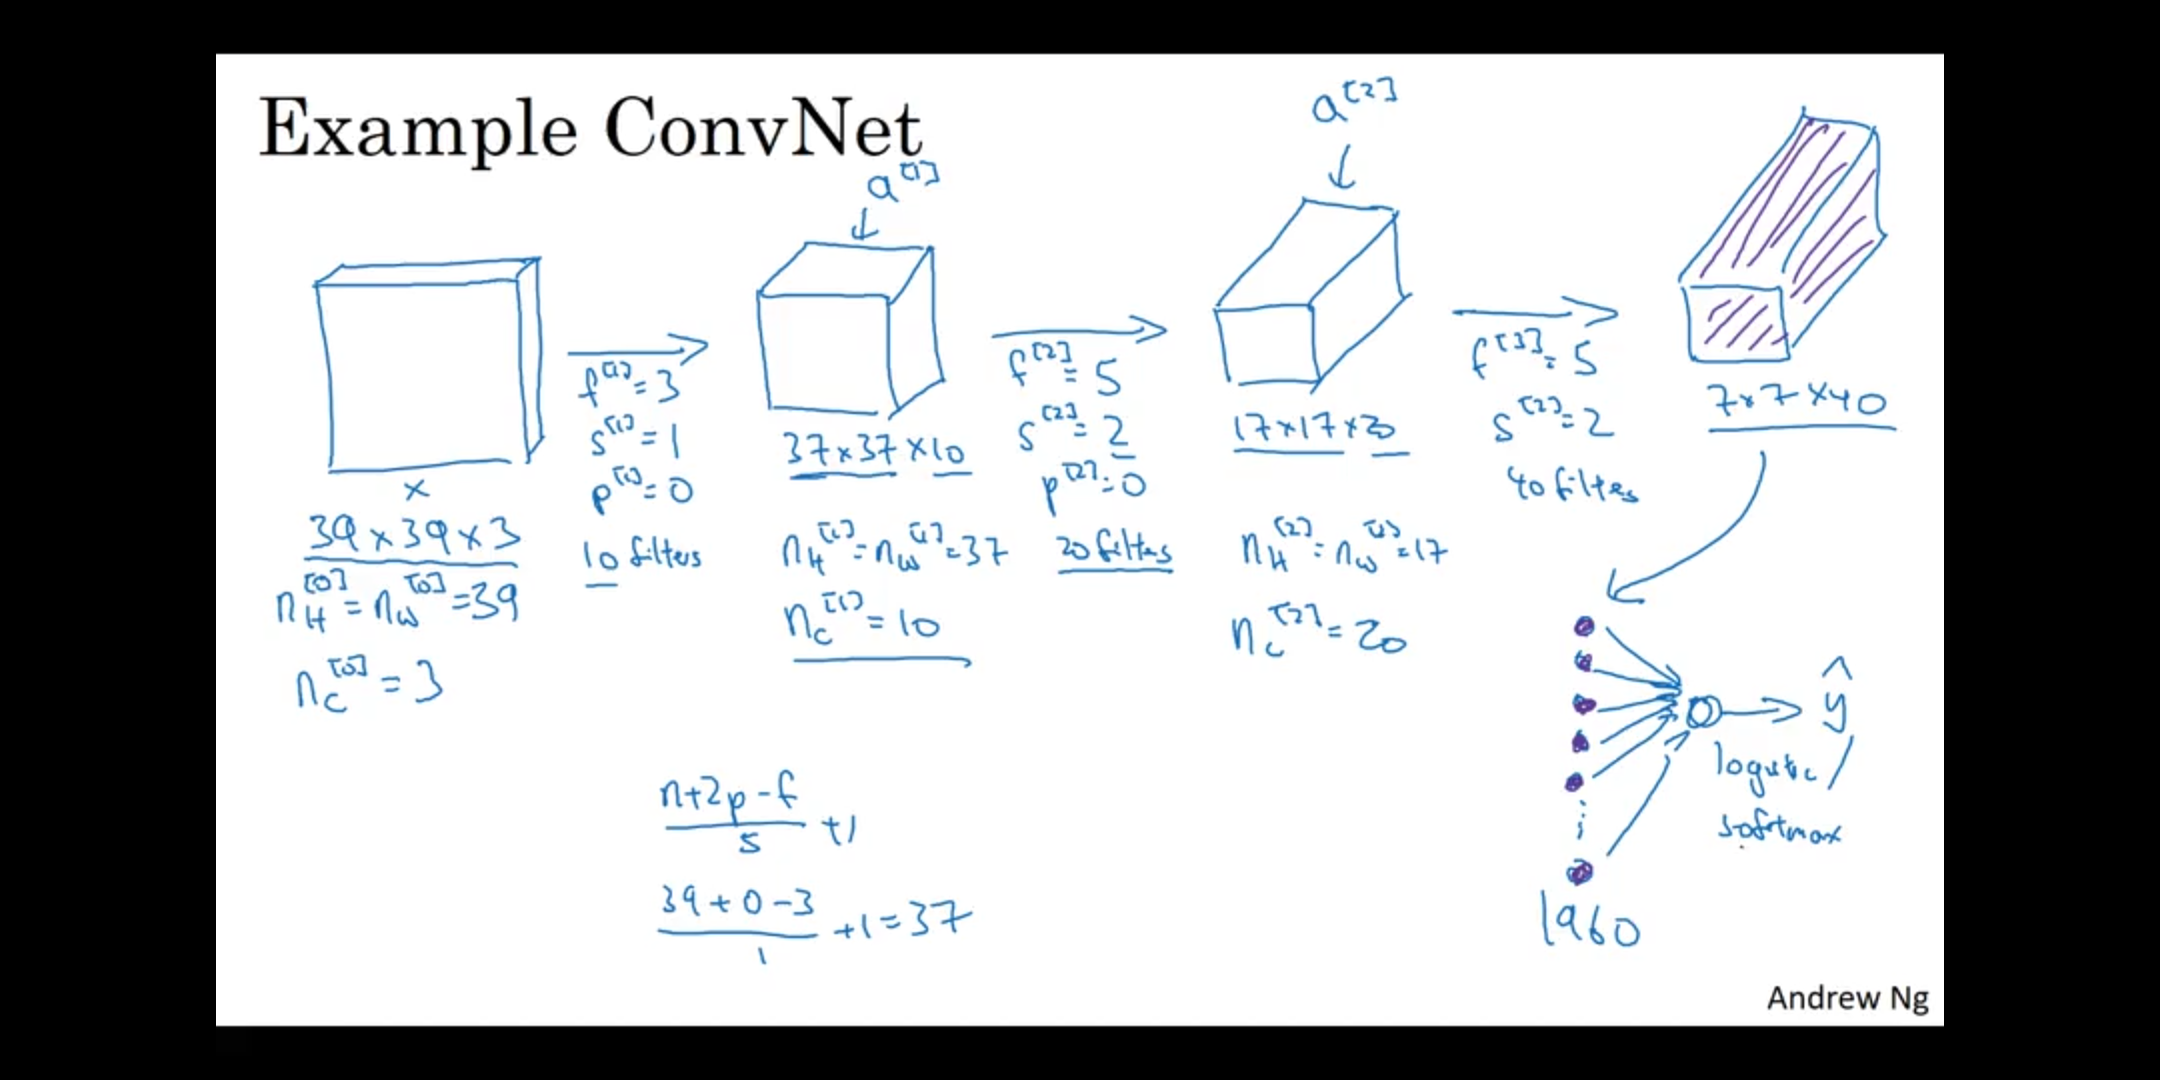 Example ConvNet
a^[1]
a^[2]
x
39 x 39 x 3
n_H^[0] = n_W^[0] = 39
n_C^[0] = 3
f^[1] = 3
s^[1] = 1
p^[1] = 0
10 filters
37 x 37 x 10
n_H^[1] = n_W^[1] = 37
n_C^[1] = 10
f^[2] = 5
s^[2] = 2
p^[2] = 0
20 filters
17 x 17 x 20
n_H^[2] = n_W^[2] = 17
n_C^[2] = 20
f^[3] = 5
s^[2] = 2
40 filters
7 x 7 x 40
1960
ŷ
logistic /
softmax
(n+2p-f)/s +1
(39 + 0 - 3)/1 +1 = 37
Andrew Ng